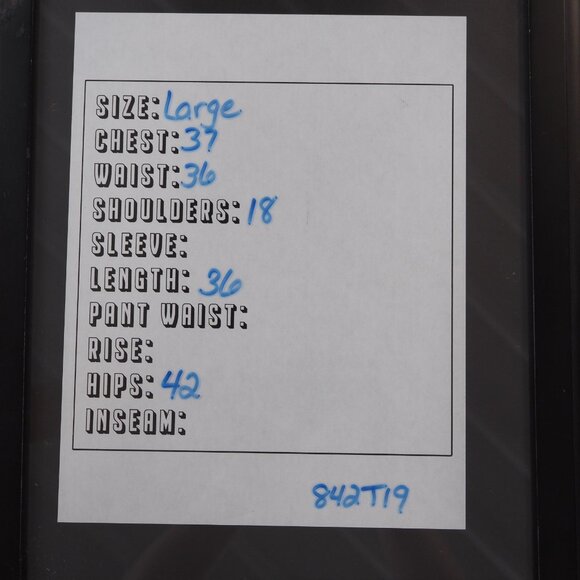 SIZE: Large
CHEST: 37
WAIST: 36
SHOULDERS: 18
SLEEVE:
LENGTH: 36
PANT WAIST:
RISE:
HIPS: 42
INSEAM:
842T19